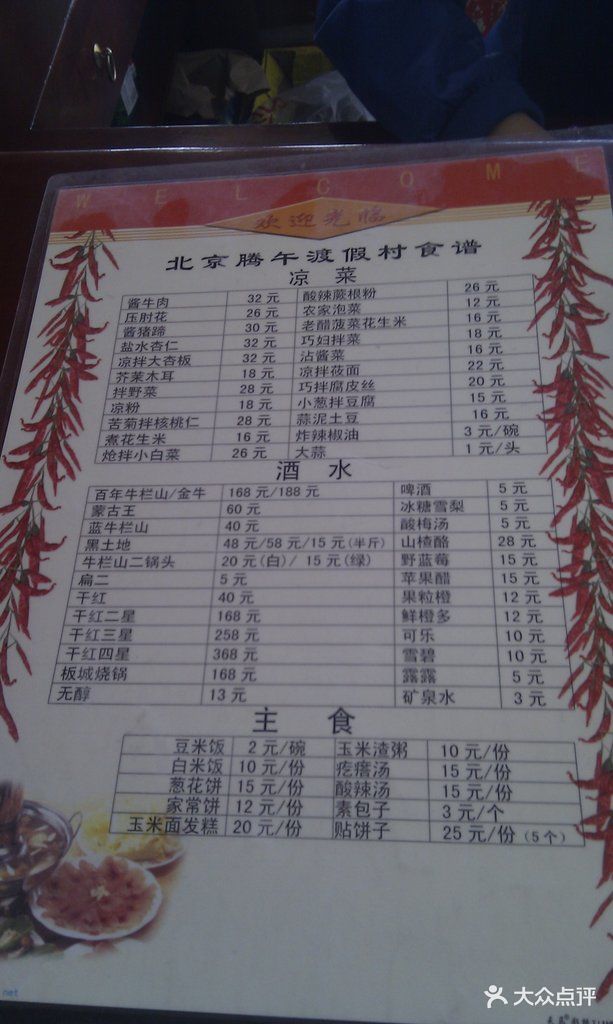 WELCOME
欢迎光临
北京腾午渡假村食谱
凉 菜
酱牛肉 32 元 酸辣蕨根粉 26 元
压肘花 26 元 农家泡菜 12 元
酱猪蹄 30 元 老醋菠菜花生米 16 元
盐水杏仁 32 元 巧妇拌菜 18 元
凉拌大杏板 32 元 沾酱菜 16 元
芥茉木耳 18 元 凉拌莜面 22 元
拌野菜 28 元 巧拌腐皮丝 20 元
凉粉 18 元 小葱拌豆腐 15 元
苦菊拌核桃仁 28 元 蒜泥土豆 16 元
煮花生米 16 元 炸辣椒油 3 元/碗
炝拌小白菜 26 元 大蒜 1 元/头
酒 水
百年牛栏山/金牛 168 元/188 元 啤酒 5 元
蒙古王 60 元 冰糖雪梨 5 元
蓝牛栏山 40 元 酸梅汤 5 元
黑土地 48 元/58 元/15 元(半斤) 山楂酪 28 元
牛栏山二锅头 20 元(白)/ 15 元(绿) 野蓝莓 15 元
扁二 5 元 苹果醋 15 元
干红 40 元 果粒橙 12 元
干红二星 168 元 鲜橙多 12 元
干红三星 258 元 可乐 10 元
干红四星 368 元 雪碧 10 元
板城烧锅 168 元 露露 5 元
无醇 13 元 矿泉水 3 元
主 食
豆米饭 2 元/碗 玉米渣粥 10 元/份
白米饭 10 元/份 疙瘩汤 15 元/份
葱花饼 15 元/份 酸辣汤 15 元/份
家常饼 12 元/份 素包子 3 元/个
玉米面发糕 20 元/份 贴饼子 25 元/份（5 个）
net
大众点评